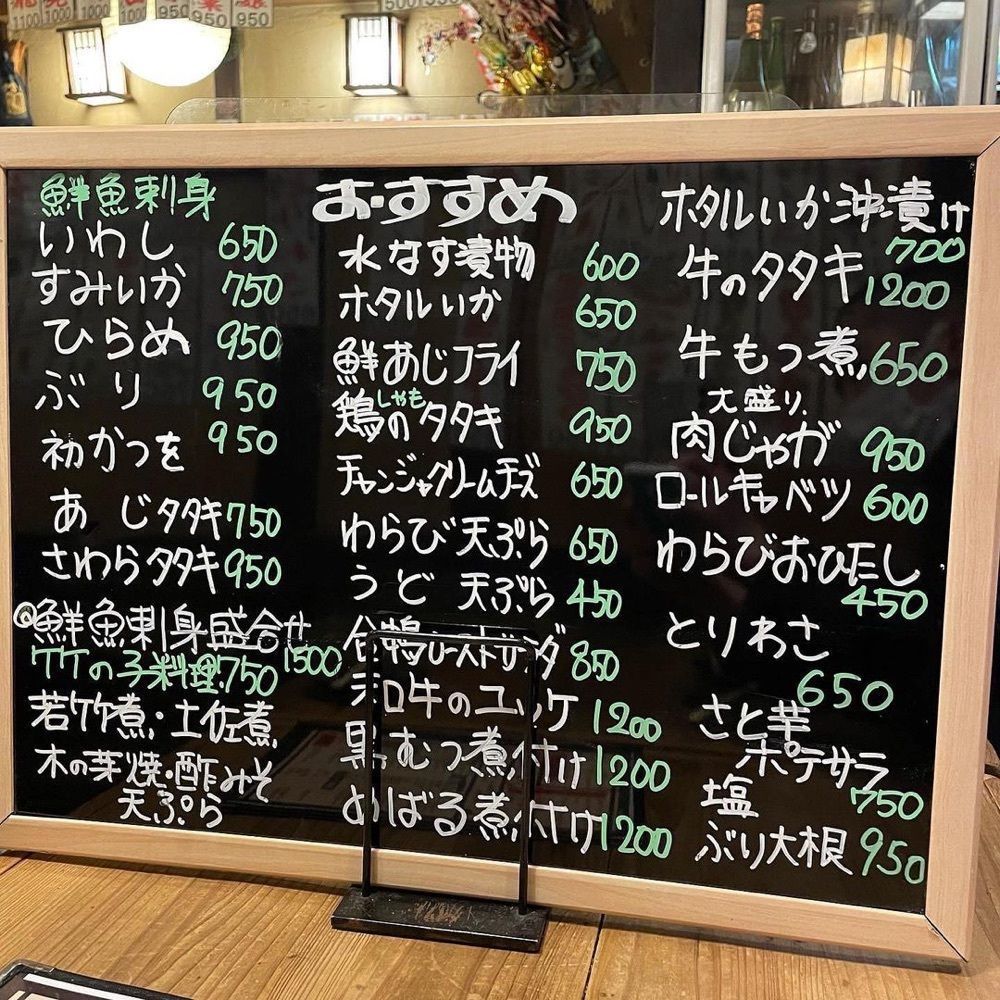 鮮魚刺身
いわし 650
すみいか 750
ひらめ 950
ぶり 950
初かつを 950
あじタタキ 750
さわらタタキ 950
◎鮮魚刺身盛合せ 1500
タケの子料理 750
若竹煮・土佐煮
木の芽焼・酢みそ
天ぷら
おすすめ
水なす漬物 600
ホタルいか 650
鮮あじフライ 750
しゃも
鶏のタタキ 950
チャンジャクリームチーズ 650
わらび天ぷら 650
うど天ぷら 450
合鴨ローストサラダ 850
和牛のユッケ 1200
黒むつ煮付け 1200
めばる煮付け 1200
ホタルいか沖漬け
700
牛のタタキ 1200
牛もつ煮 650
大盛り
肉じゃが 950
ロールキャベツ 600
わらびおひたし
450
とりわさ
650
さと芋
ポテサラ
750
塩
ぶり大根 950